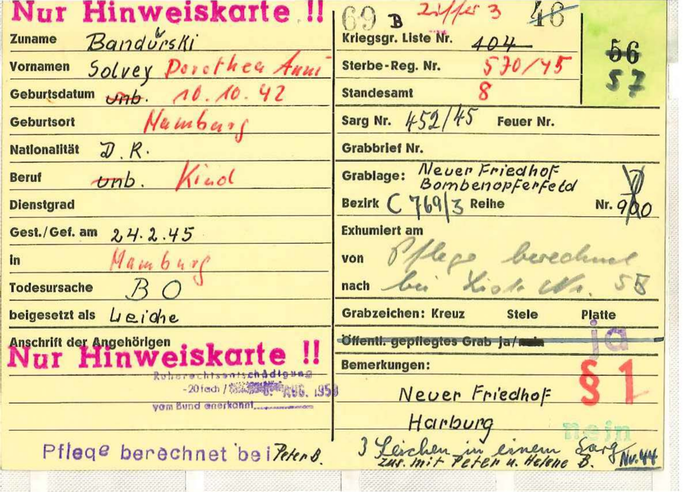 Nur Hinweiskarte !!
Zuname Bandurski
Vornamen Solvey Dorothea Anni
Geburtsdatum unb. 10.10.42
Geburtsort Hamburg
Nationalität D.R.
Beruf unb. Kind
Dienstgrad
Gest./Gef. am 24.2.45
in Hamburg
Todesursache BO
beigesetzt als Leiche
Anschrift der Angehörigen
Nur Hinweiskarte !!
Ruherechtsentschädigung
-20fach/ AUG. 195
vom Bund anerkannt
Pflege berechnet bei Peter B.
69 B Ziffer 3 46
Kriegsgr. Liste Nr. 404
56
57
Sterbe-Reg. Nr. 570/45
Standesamt 8
Sarg Nr. 452/45 Feuer Nr.
Grabbrief Nr.
Grablage: Neuer Friedhof
Bombenopferfeld
Bezirk C 769/3 Reihe Nr. 900
Exhumiert am
von Pflege berechnet
nach bei Liste Nr. 58
Grabzeichen: Kreuz Stele Platte
Öffentl. gepflegtes Grab ja/nein
ja
Bemerkungen:
§1
Neuer Friedhof
Harburg
nein
3 Leichen in einem Sarg
zus. mit Peter u. Helene B. Nr. 44